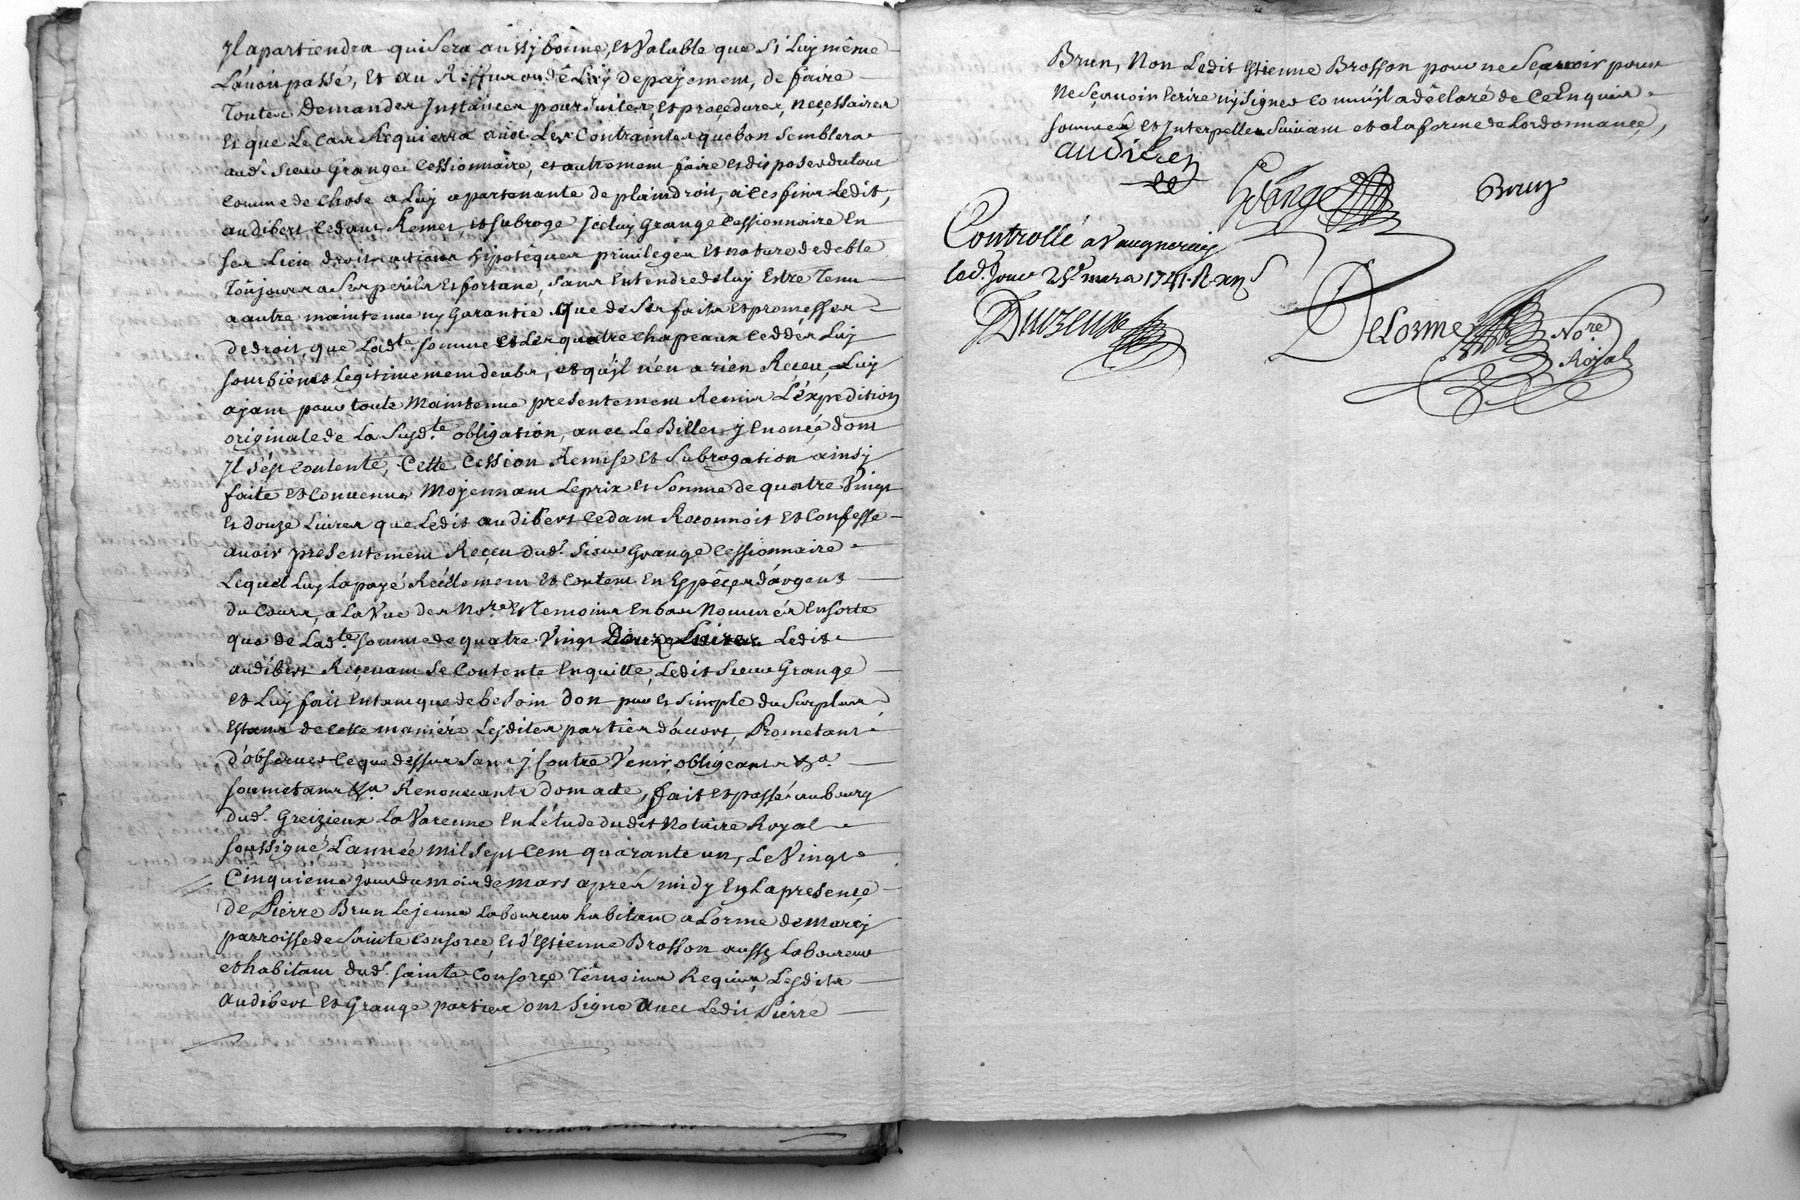 Jl apartiendra qui sera aussy bonne, et Valable que si Luy même
Lavoit passé, Et au Reffus ou dê Luy de payement, de faire
Toutes Demandes Jnstances poursuites, et procedures, necessaires
Et que Le Cas Requierra avec Les Contraintes que bon semblera
aud. sieur Grange Cessionnaire, et autrement faire et disposer du tout
Comme de Chose a Luy apartenante de plain droit, a Ces fins Ledit,
audibert Cedant Remet, et subroge Jceluy Grange Cessionnaire En
ses Lieu droits actions hipotêques privileges et nature de debte
Toujours a ses perils et fortune, sans Entendre de luy Estre Tenu
a autre maintenue ny Garantie que de ses faits et promesses
de droit, que Ladte somme et Les quatre Chapeaux Ceddés Luy
sont biênes Legitimement deubs, et qu'jl n'en a rien Reçeu, Luy
ajant pour toute Maintenue presentement Remis L'éxpedition
originale de La susdte obligation, avec Le Billet y Enoncé dont
Jl s'ést Contenté, Cette Cession Remise et Subrogation ainsy
faite et Convenue Moyennant Le prix et Somme de quatre Vingt
Et douze Livres que Ledit audibert Cedant Reconnoit et Confesse
avoir presentement Reçeu dud. sieur Grange Cessionnaire
Lequel Luy La payé Réellement et Contant En Espêçes d'argent
du Cours, a La Vue des Nore Et Temoins En bas Nommés En sorte
que de Ladte somme de quatre Vingt Douze Livres Ledit
audibert Reçevant se Contente En quitte, Ledit Sieur Grange
et Luy fait En tant que de besoin don pur et simple du Surplus
Estant de Cette maniére Lesdites parties d'acort, Prometant
d'observer Ce que dessus sans y Contre Venir, obligeants &a
soumetans &a Renonçants dont acte, fait et passé au bourg
dud. Greizieux la Varenne En L'étude dudit Notaire Royal
soussigné L'année Mil Sept Cent quarante un, Le Vingt
Cinquieme jour du mois de mars apres midy En La presence
de Pierre Brun Le jeune Laboureur habitant a Lorme de Marcy
parroisse de Sainte Consorce, Et d'Estienne Brosson aussy Laboureur
et habitant dud. Sainte Consorce Têmoins Requis, Lesdits
audibert et Grange parties ont signé avec Ledit Pierre
Brun, Non Ledit Estienne Brosson pour ne Sçavoir pour
Ne Sçavoir Ecrire ny Signer Comm'jl a dêclaré de Ce Enquis
sommés et Interpellés Suivant et a la forme de Lordonnance,
audibert
Grange
Brun
Controllé a Vaugneray
led. Jour 25e mars 1741. R
Delorme Nore
Royal